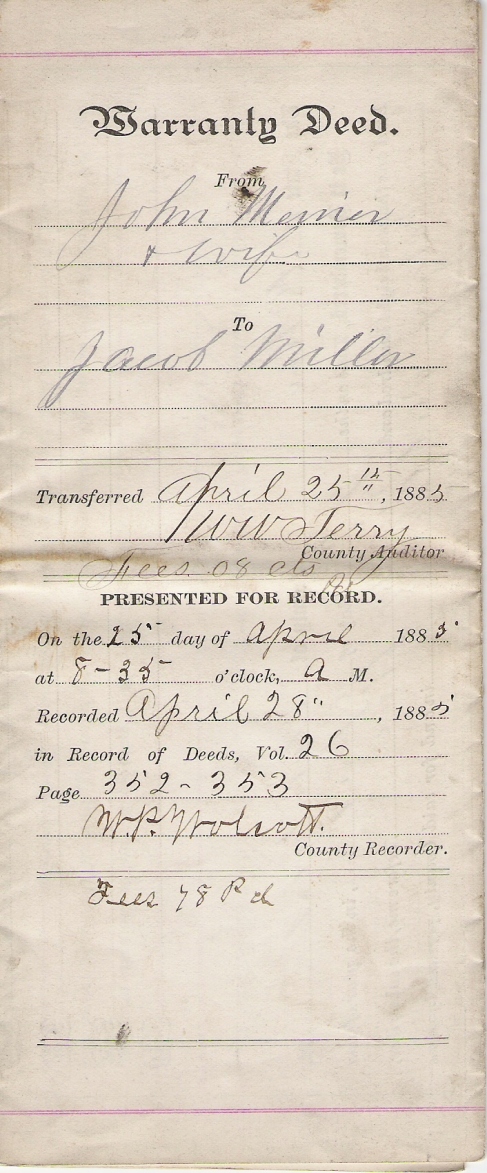 Warranty Deed.
From
John Menier
& wife
To
Jacob Miller
Transferred April 25th, 1885
Terry
County Auditor
Fees 08 cts
PRESENTED FOR RECORD.
On the 25 day of April 1885
at 8-35 o'clock, A M.
Recorded April 28", 1885
in Record of Deeds, Vol. 26
Page 352-353
W.P. Wolcott.
County Recorder.
Fees 78 Pd